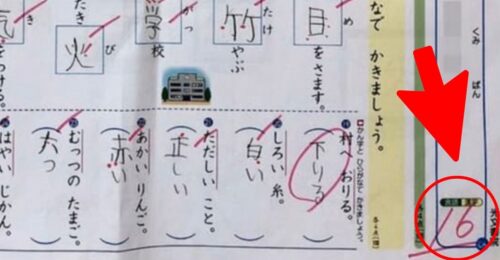 くみ
ばん
なで かきましょう。
め
目
をさます。
たけ
竹
やぶ
がっ
学
校
び
火
たき
気
をつける。
かん字と ひらがなで かきましょう。
村へ おりる。
下りる。
しろい 糸。
白い
ただしい こと。
正しい
あかい りんご。
赤い
むっつの たまご。
六つ
はやい じかん。
16